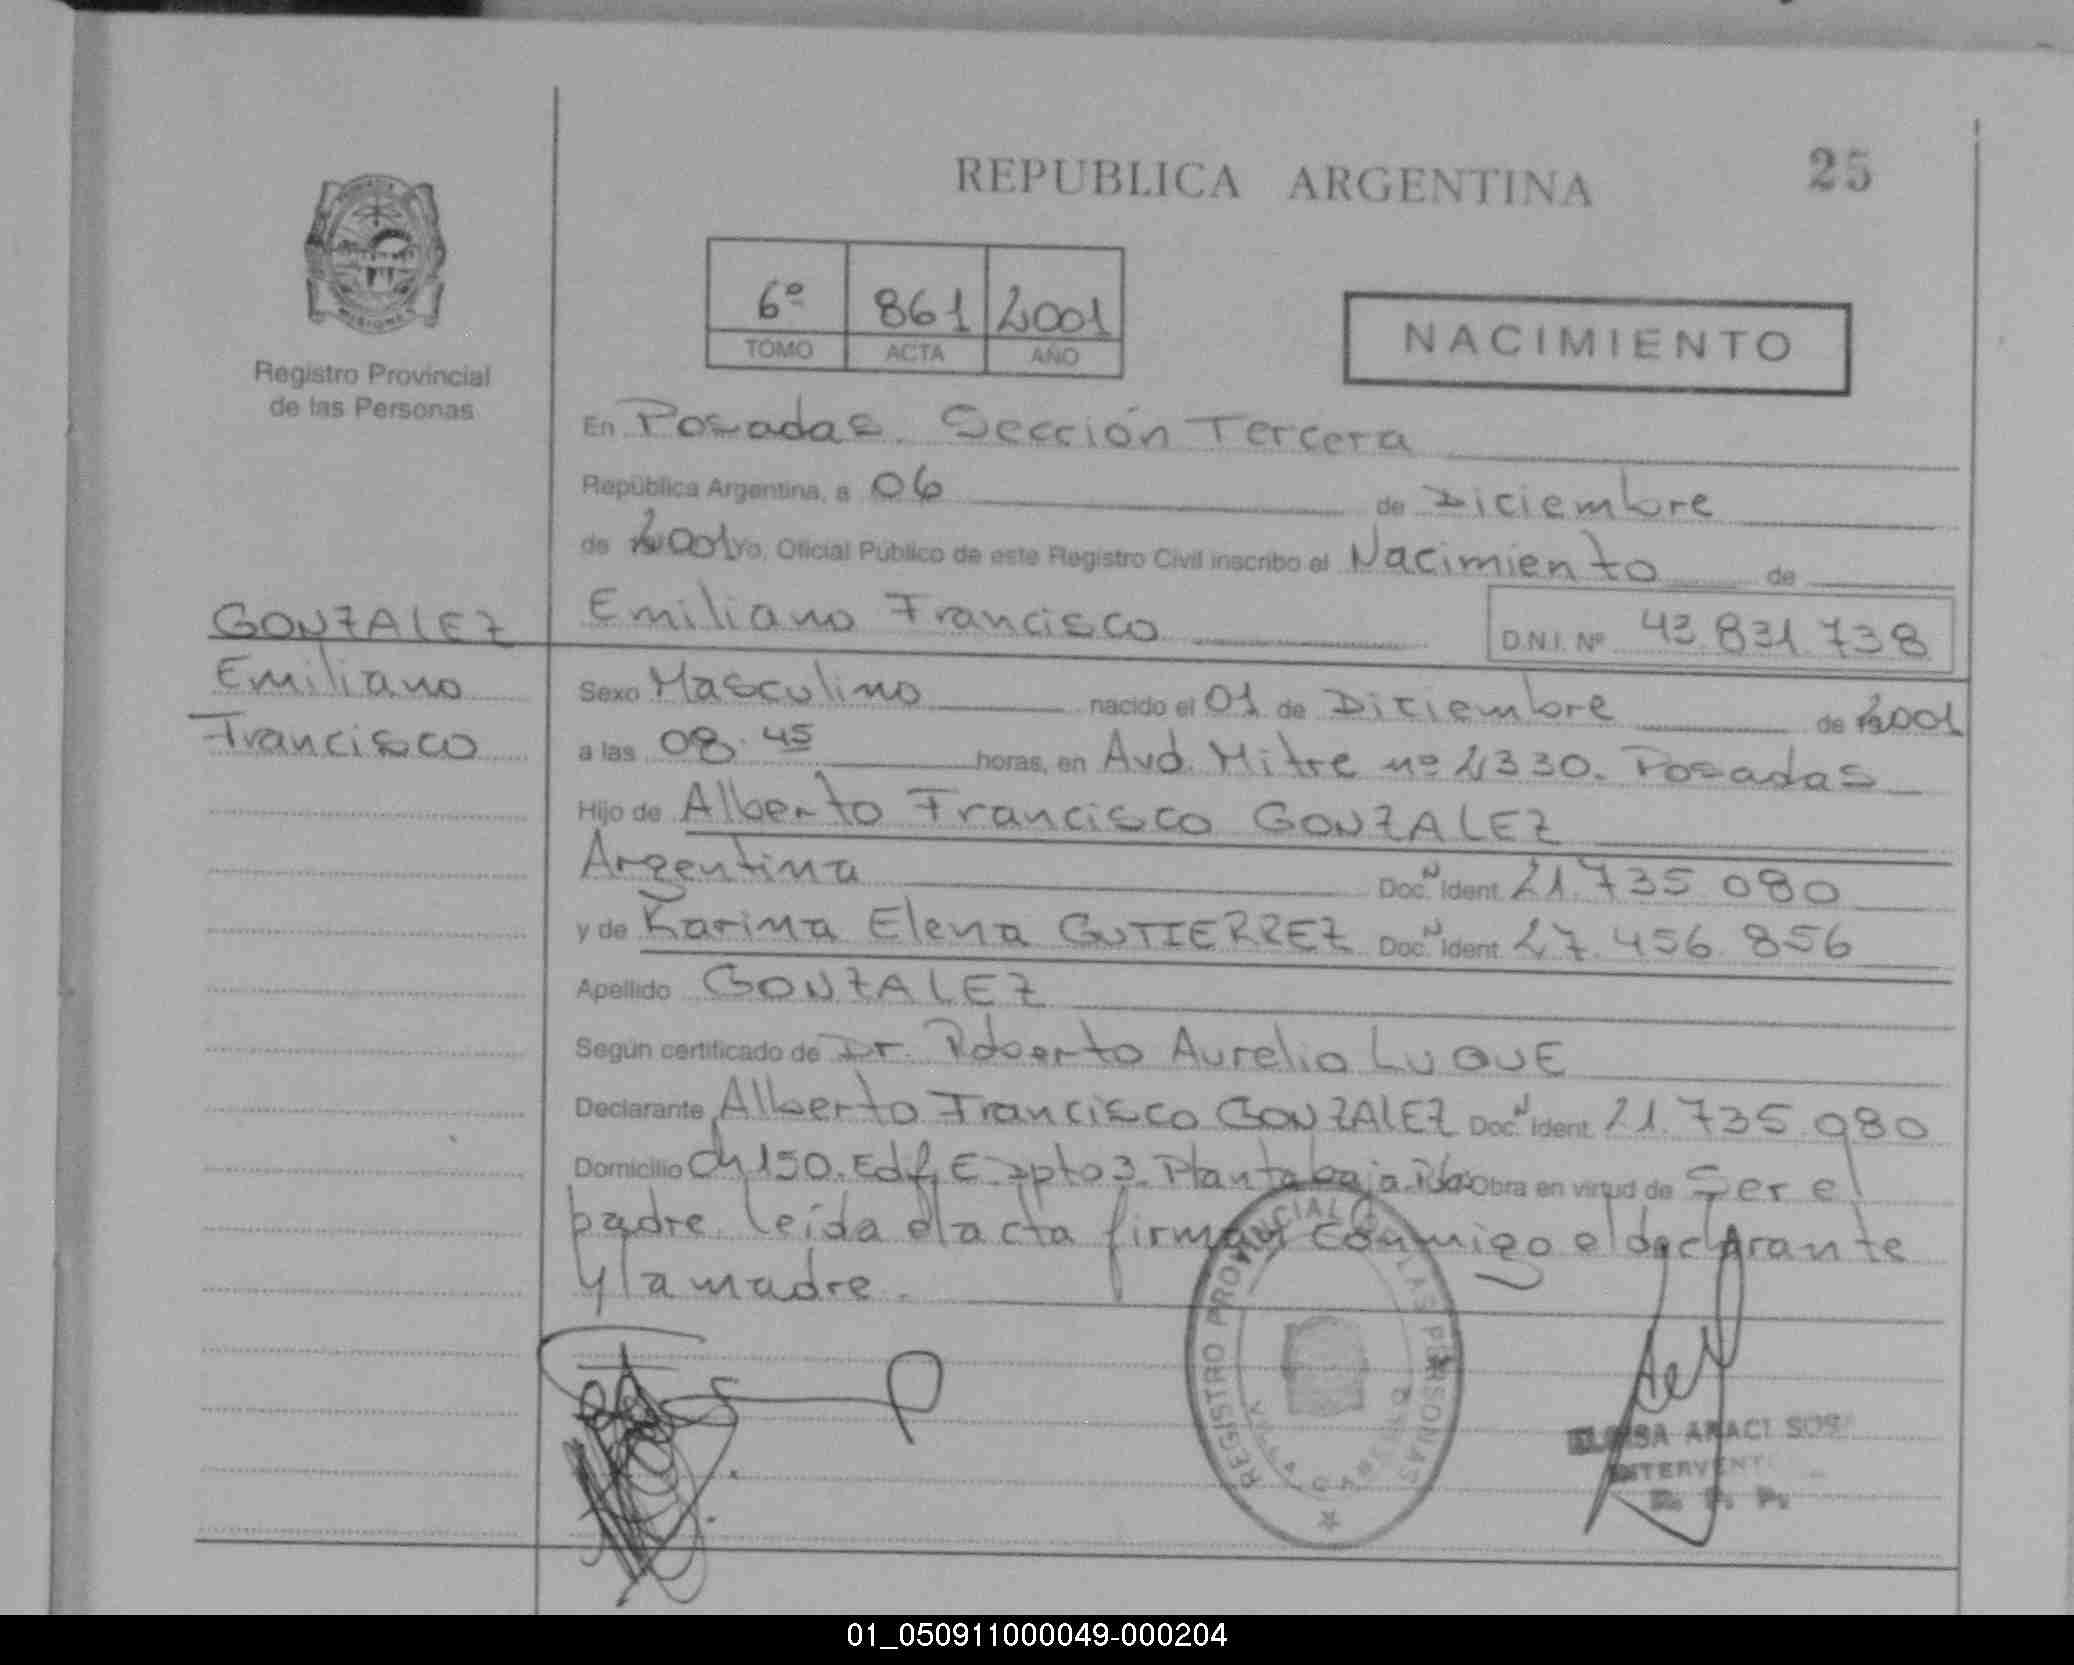 REPUBLICA ARGENTINA
25
MISIONES
Registro Provincial
de las Personas
6º 861 2001
TOMO ACTA AÑO
NACIMIENTO
En Posadas. Sección Tercera
República Argentina, a 06 de Diciembre
de 2001 Yo, Oficial Público de este Registro Civil inscribo el Nacimiento de
GONZALEZ
Emiliano
Francisco
Emiliano Francisco D.N.I. Nº 43.831.738
Sexo Masculino nacido el 01 de Diciembre de 2001
a las 08.45 horas, en Avd. Mitre nº 2330. Posadas
Hijo de Alberto Francisco GONZALEZ
Argentina Doc. N Ident. 21.735.080
y de Karina Elena GUTIERREZ Doc. N Ident. 27.456.856
Apellido GONZALEZ
Según certificado de Dr. Roberto Aurelio LUQUE
Declarante Alberto Francisco GONZALEZ Doc. N Ident. 21.735.080
Domicilio Ch 150. Edf. E Dpto 3. Planta baja. Obra en virtud de Ser el
padre. leída el acta firman conmigo el declarante
y la madre.
REGISTRO PROVINCIAL DE LAS PERSONAS
ARACI SOSA
INTERVENT
R. P. P.
01_050911000049-000204